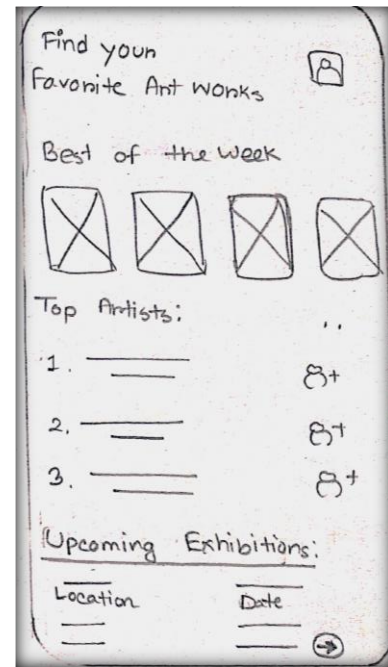 Find your
Favorite Art Works
Best of the Week
Top Artists:
1.
2.
3.
Upcoming Exhibitions:
Location Date